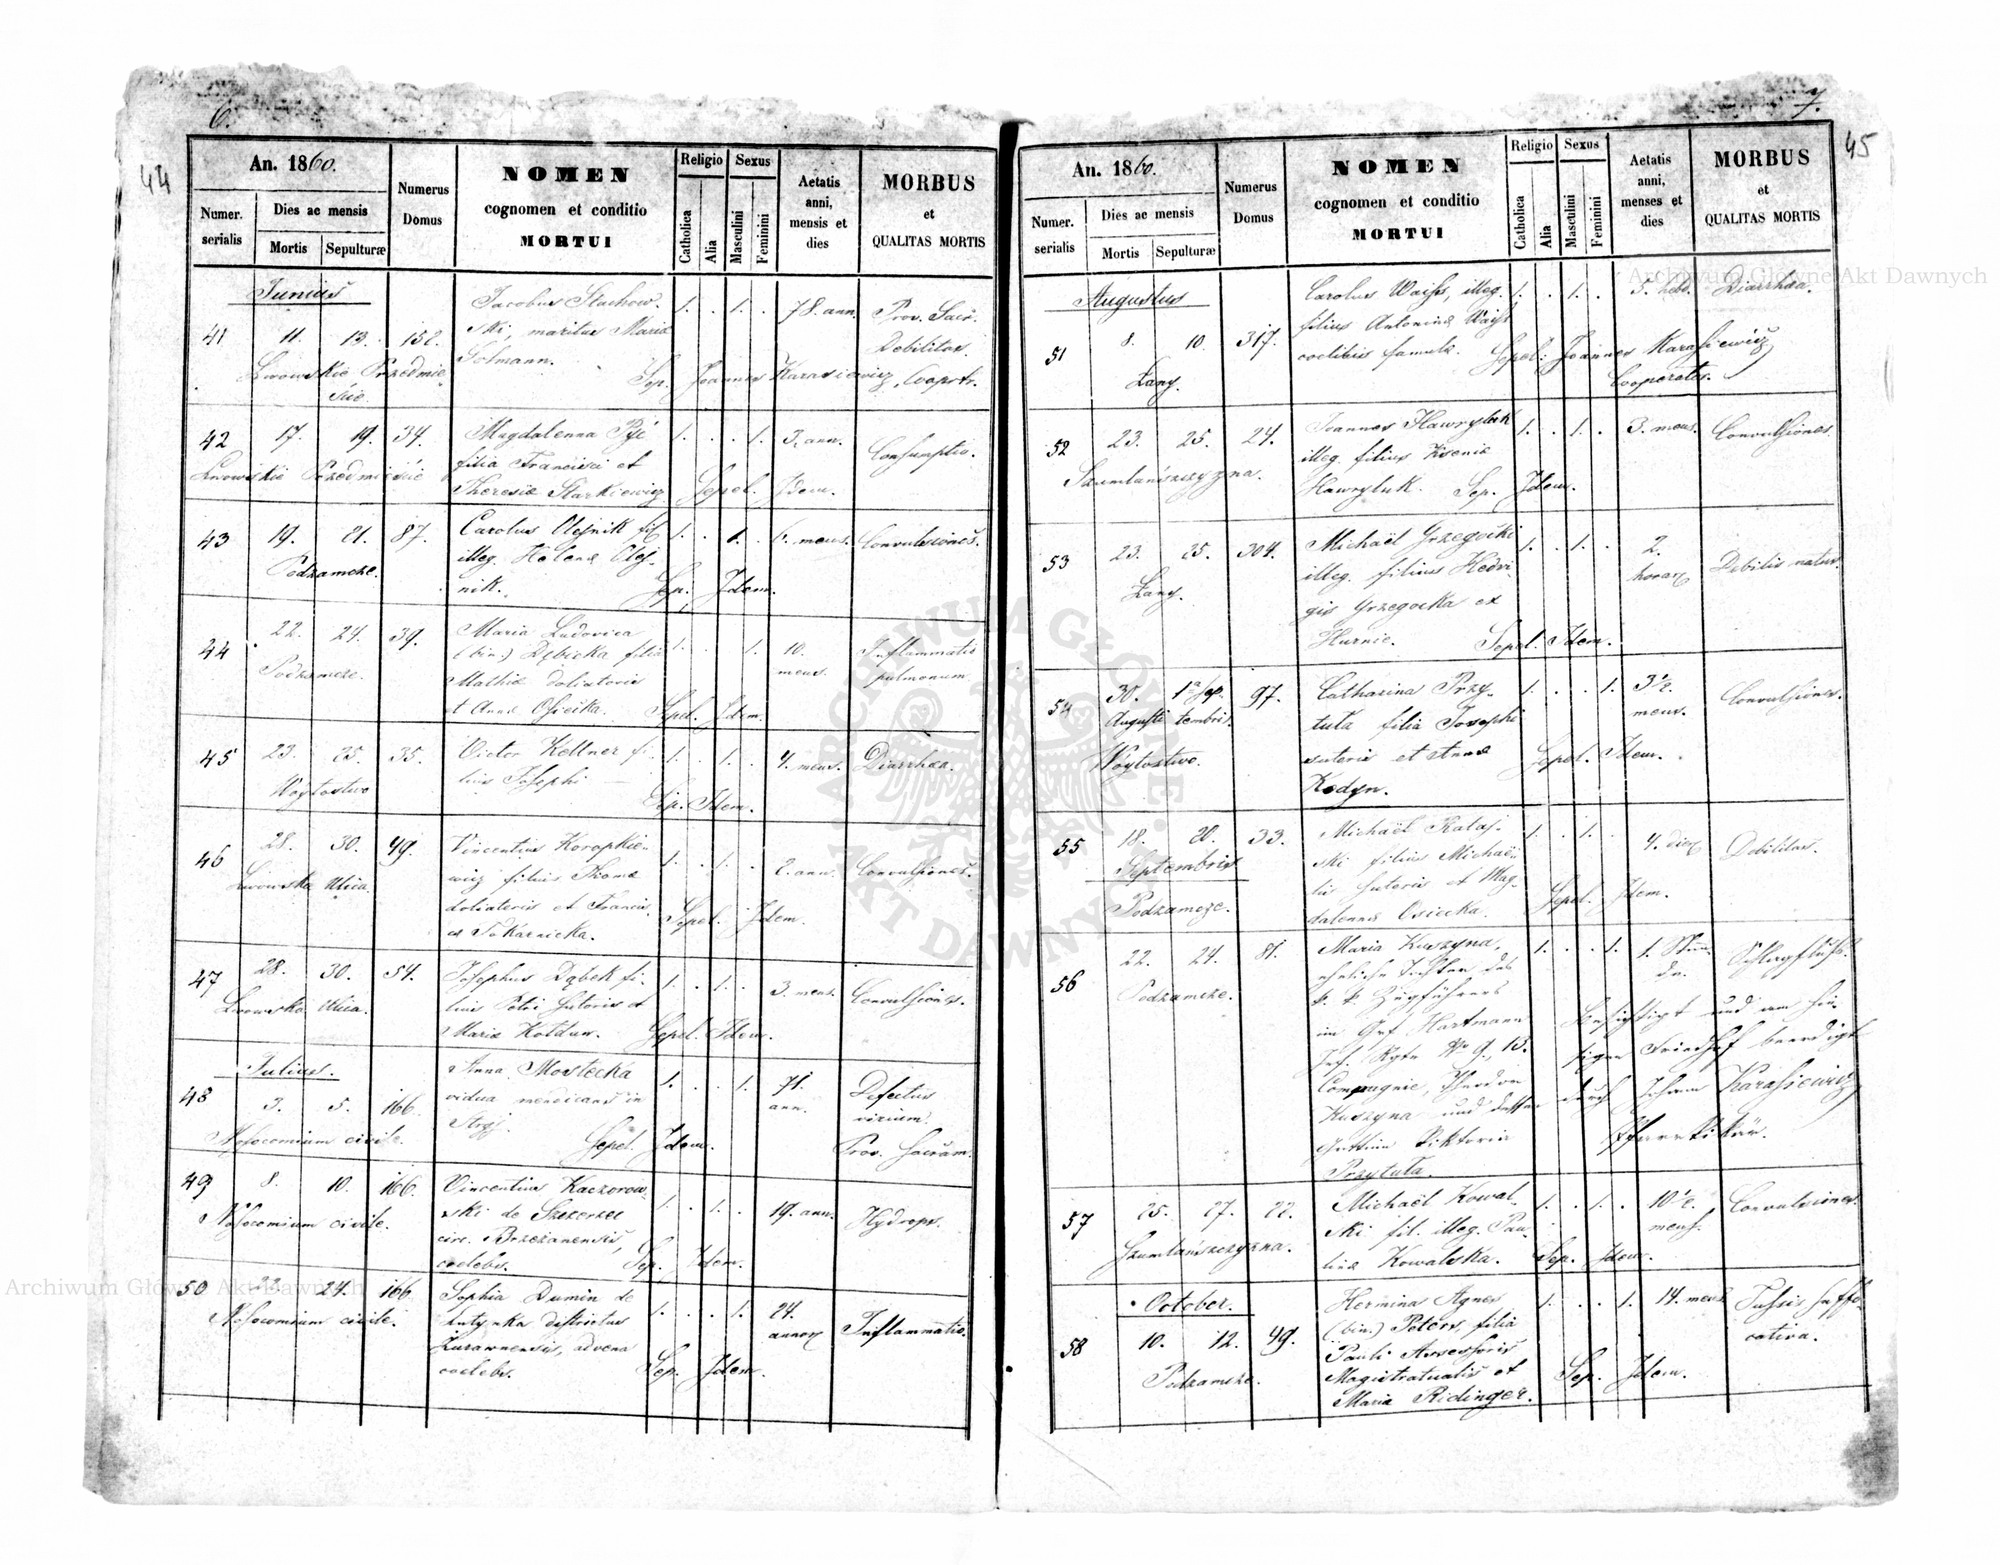 6.
44
An. 1860.
Numer. serialis
Dies ac mensis
Mortis
Sepulturæ
Numerus Domus
NOMEN
cognomen et conditio
MORTUI
Religio
Catholica
Alia
Sexus
Masculini
Feminini
Aetatis anni, mensis et dies
MORBUS
et
QUALITAS MORTIS
Junius
41 11. 13. 152. Jacobus Stachow- 1. . 1. . 78. ann. Prov. Sacr.
ski, maritus Maria Debilitas.
Solmann.
Lwowskie Przedmie- Sep. Joannes Karasiewicz, Cooprtr.
ście.
42 17. 19. 34. Magdalenna 1. . . 1. 3. ann. Consumptio.
filia Francisci et
Lwowskie Przedmieście
Theresiæ Starkiewicz Sepel. Idem.
43 19. 21. 87. Carolus Olejnik fil. 1. . 1. . 6. mens. Convulsiones.
illeg. Helenæ Olej-
Podzamcze.
nik. Sep. Idem.
44 22. 24. 39. Maria Ludovica 1. . . 1. 10. mens. Inflammatio
(bin.) Dębicka filia pulmonum.
Podzamcze.
Mathiæ doliatoris
et Annæ Osiecka. Sepel. Idem.
45 23. 25. 35. Victor Kellner fi- 1. . 1. . 4. mens. Diarrhœa.
lius Josephi
Woytostwo
Sep. Idem.
46 28. 30. 49. Vincentius Koropkie- 1. . 1. . 2. ann. Convulsiones.
wicz filius Thomæ
Lwowska Ulica.
doliatoris et Francis-
cæ Tokarnicka. Sepel. Idem.
47 28. 30. 54. Josephus Dąbek fi- 1. . 1. . 3. mens. Convulsiones.
lius Petri sutoris et
Lwowska Ulica.
Mariæ Kołdun. Sepel. Idem.
Julius.
48 3. 5. 166. Anna Mostecka 1. . . 1. 71. ann. Defectus
vidua mendicans in virium.
Stryj.
Nosocomium civile. Sepel. Idem. Prov. Sacram.
49 8. 10. 166. Vincentius Kaczorow- 1. . 1. . 19. ann. Hydrops.
ski de Szczerzec
Nosocomium civile.
circ. Brzezanensis,
coelebs. Sep. Idem.
50 22. 24. 166. Sophia Dumin de 1. . . 1. 24. annor. Inflammatio.
Lutynka districtus
Nosocomium civile.
Zurawnensis, advena
coelebs. Sep. Idem.
7.
45
An. 1860.
Numer. serialis
Dies ac mensis
Mortis
Sepulturæ
Numerus Domus
NOMEN
cognomen et conditio
MORTUI
Religio
Catholica
Alia
Sexus
Masculini
Feminini
Aetatis anni, menses et dies
MORBUS
et
QUALITAS MORTIS
Augustus
51 8. 10. 317. Carolus Waiss, illeg. 1. . 1. . 5. hebd. Diarrhœa.
filius Antoninæ Waiss
coelibis famulæ. Sepel: Joannes Karasiewicz
Łany. Cooperator.
52 23. 25. 24. Joannes Hawryluk 1. . 1. . 3. mens. Convulsiones.
illeg. filius Kseniæ
Szumlańszczyzna.
Hawryluk. Sep. Idem.
53 23. 25. 304. Michaël Grzegocki 1. . 1. . 2. horar. Debilis natus.
illeg. filius Hedvi-
Łany.
gis Grzegocka ex
Hurnie. Sepel. Idem.
54 30. 1a Sep- 97. Catharina Przy- 1. . . 1. 3 1/2 mens. Convulsiones.
Augusti tembris.
tuła filia Josephi
Woytostwo.
sutoris et Annæ Sepel. Idem.
Kodyn.
55 18. 20. 33. Michaël Rataj- 1. . 1. . 4. dier. Debilitas.
Septembris
ski filius Michaë-
lis sutoris et Mag- Sepel. Idem.
Podzamcze.
dalennæ Osiecka.
56 22. 24. 81. Maria Kuszyna, 1. . . 1. 1. Stun- Schlagfluss.
eheliche Tochter des de.
Podzamcze.
k. k. Zugführers
im Grf. Hartmann Besichtigt und am hie-
Inf. Rgte No 9., 13. sigen Friedhof beerdigt
Compagnie, Theodor durch Johann Karasiewicz
Kuszyna und dessen
Gattin Viktoria Pfarrvikär.
Przytuła.
57 25. 27. 22. Michaël Kowal- 1. . 1. . 10 1/2 mens. Convulsiones.
ski fil. illeg. Pau-
Szumlańszczyzna.
linæ Kowalska. Sep. Idem.
October.
58 10. 12. 49. Hermina Agnes 1. . . 1. 14. mens. Tussis suffo-
(bin.) Peters, filia cativa.
Pauli Assessoris
Podzamcze.
Magistratualis et Sep. Idem.
Maria Ridinger.
Archiwum Główne Akt Dawnych
Archiwum Główne Akt Dawnych
ARCHIWUM GŁÓWNE
AKT DAWNYCH